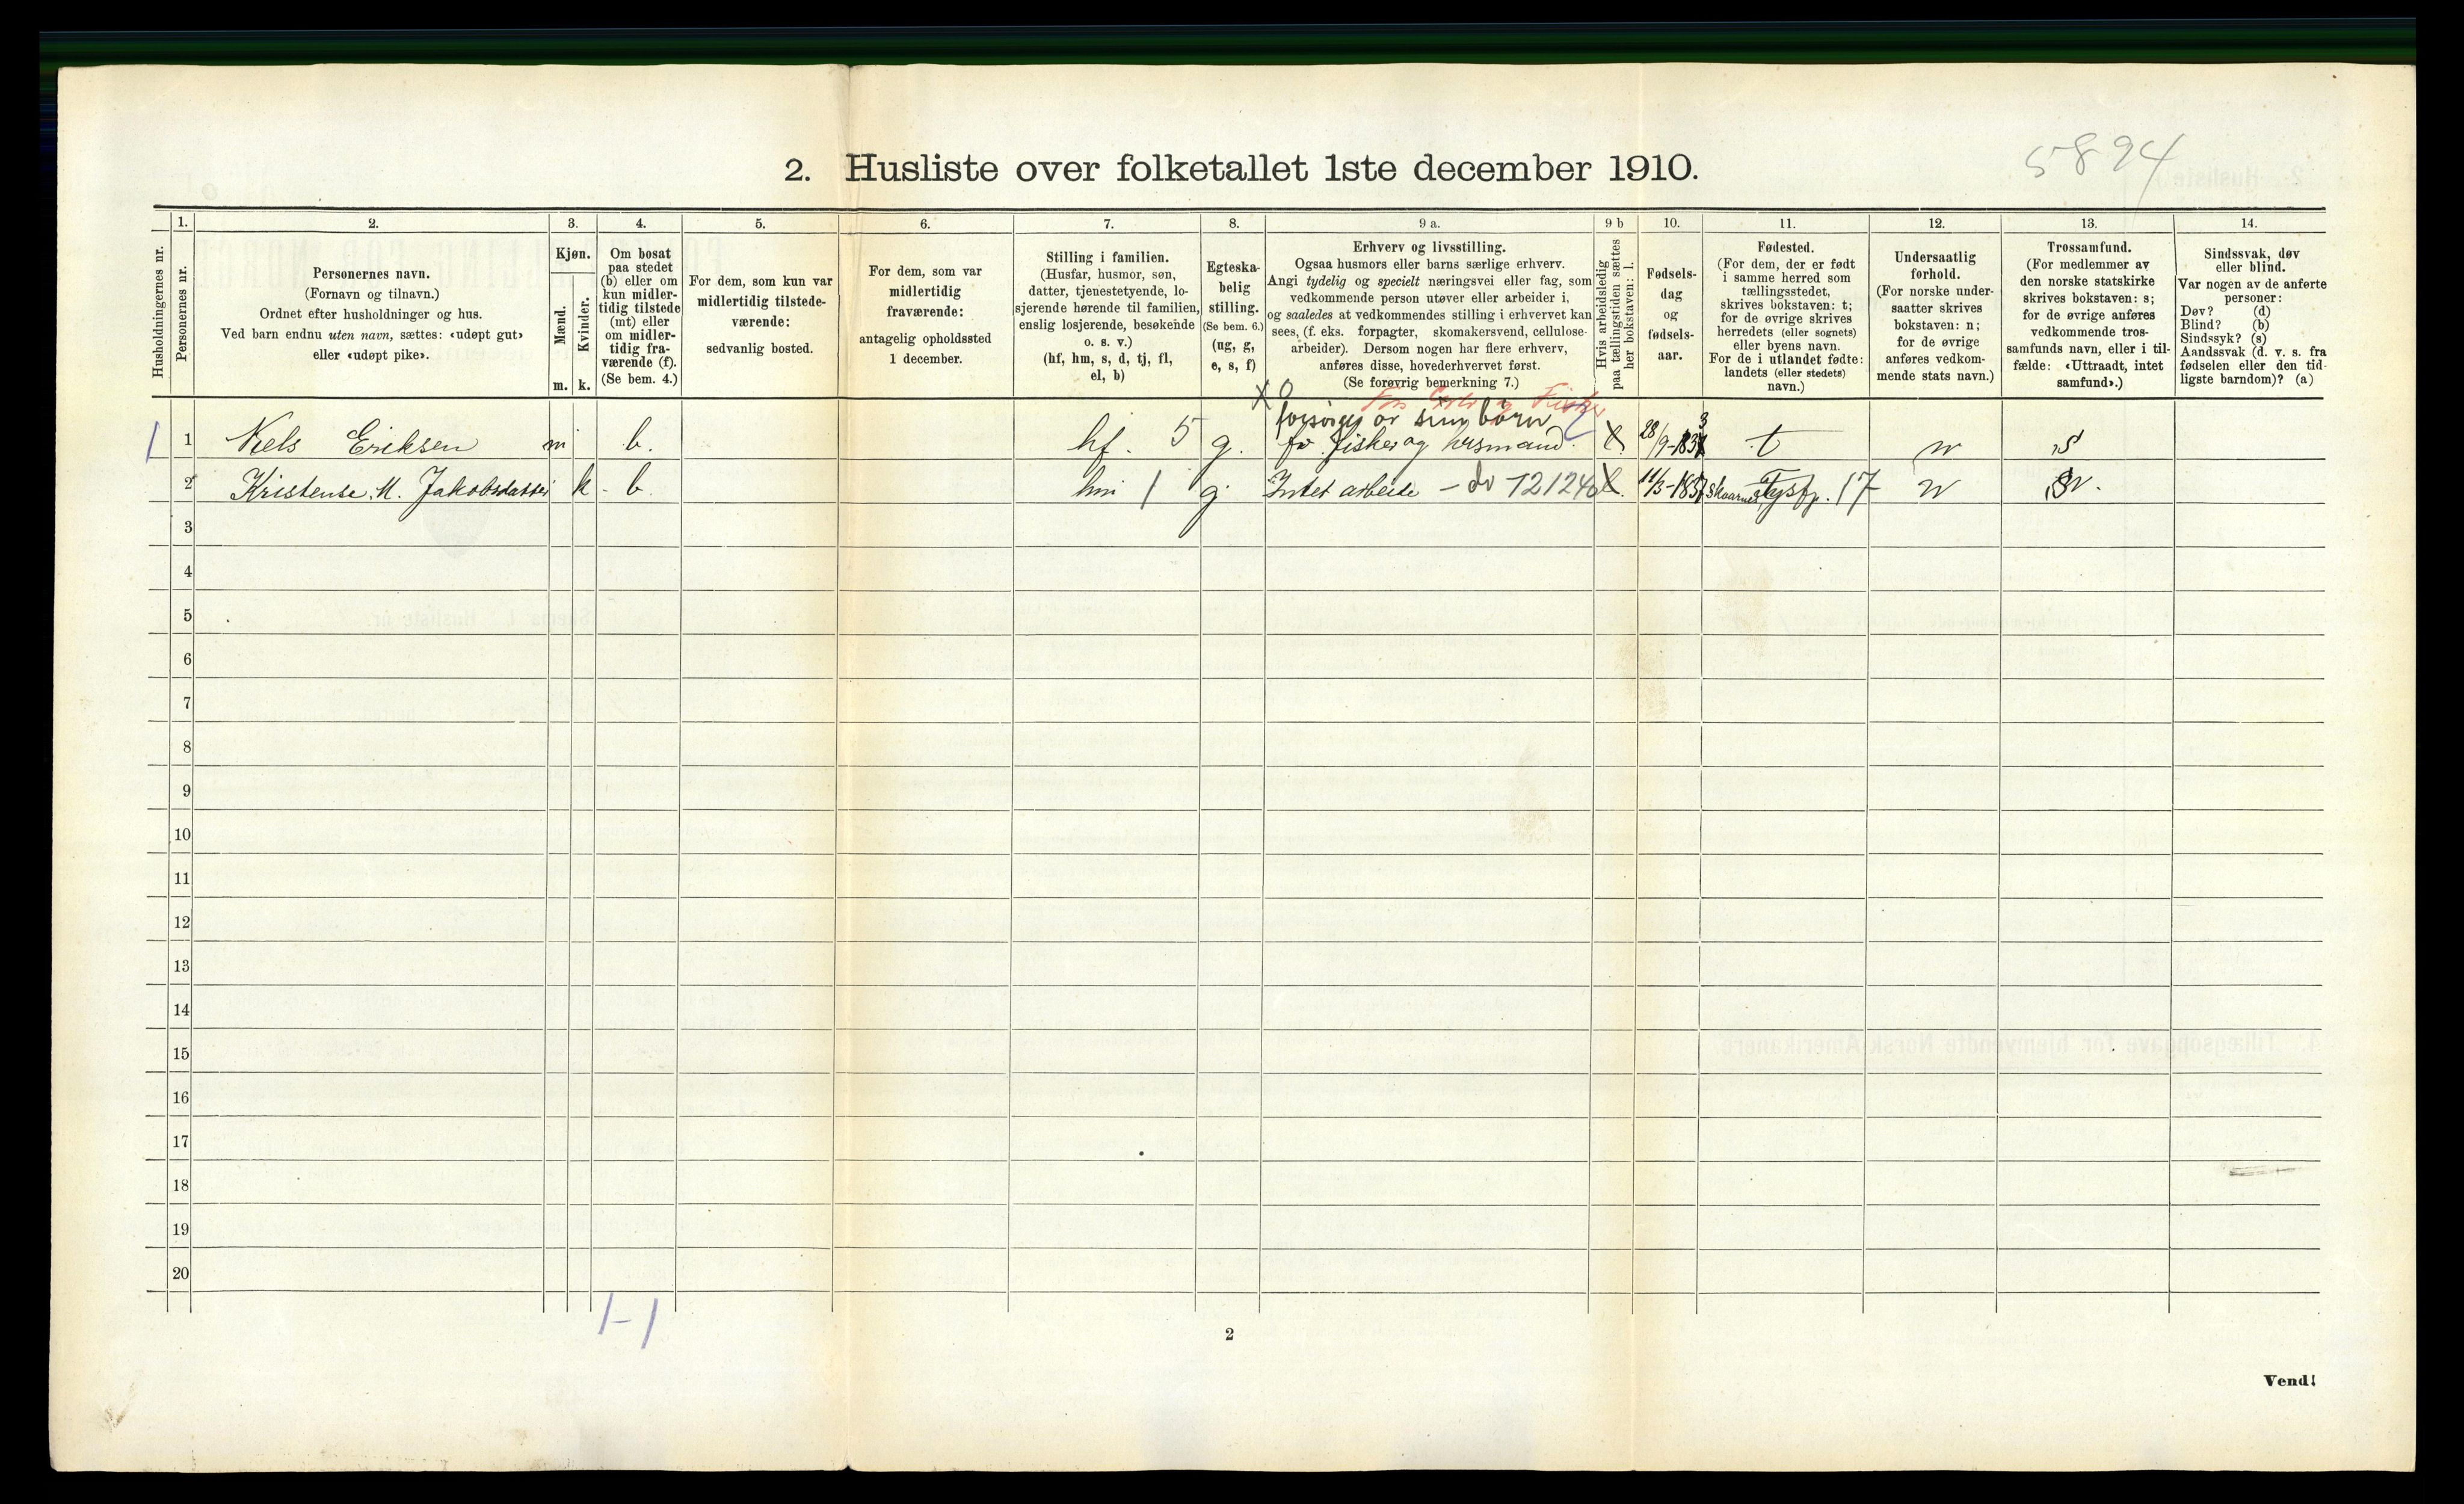 5894
2. Husliste over folketallet 1ste december 1910.
Husholdningernes nr.
1.
Personernes nr.
2.
Personernes navn.
(Fornavn og tilnavn.)
Ordnet efter husholdninger og hus.
Ved barn endnu uten navn, sættes: «udøpt gut»
eller «udøpt pike».
3.
Kjøn.
Mænd.
Kvinder.
m. k.
4.
Om bosat
paa stedet
(b) eller om
kun midler-
tidig tilstede
(mt) eller
om midler-
tidig fra-
værende (f).
(Se bem. 4.)
5.
For dem, som kun var
midlertidig tilstede-
værende:
sedvanlig bosted.
6.
For dem, som var
midlertidig
fraværende:
antagelig opholdssted
1 december.
7.
Stilling i familien.
(Husfar, husmor, søn,
datter, tjenestetyende, lo-
sjerende hørende til familien,
enslig losjerende, besøkende
o. s. v.)
(hf, hm, s, d, tj, fl,
el, b)
8.
Egteska-
belig
stilling.
(Se bem. 6.)
(ug, g,
e, s, f)
9 a.
Erhverv og livsstilling.
Ogsaa husmors eller barns særlige erhverv.
Angi tydelig og specielt næringsvei eller fag, som
vedkommende person utøver eller arbeider i,
og saaledes at vedkommendes stilling i erhvervet kan
sees, (f. eks. forpagter, skomakersvend, cellulose-
arbeider). Dersom nogen har flere erhverv,
anføres disse, hovederhvervet først.
(Se forøvrig bemerkning 7.)
9 b
Hvis arbeidsledig
paa tællingstiden sættes
her bokstaven: l.
10.
Fødsels-
dag
og
fødsels-
aar.
11.
Fødested.
(For dem, der er født
i samme herred som
tællingsstedet,
skrives bokstaven: t;
for de øvrige skrives
herredets (eller sognets)
eller byens navn.
For de i utlandet fødte:
landets (eller stedets)
navn.)
12.
Undersaatlig
forhold.
(For norske under-
saatter skrives
bokstaven: n;
for de øvrige
anføres vedkom-
mende stats navn.)
13.
Trossamfund.
(For medlemmer av
den norske statskirke
skrives bokstaven: s;
for de øvrige anføres
vedkommende tros-
samfunds navn, eller i til-
fælde: «Uttraadt, intet
samfund».)
14.
Sindssvak, døv
eller blind.
Var nogen av de anførte
personer:
Døv? (d)
Blind? (b)
Sindssyk? (s)
Aandssvak (d. v. s. fra
fødselen eller den tid-
ligste barndom)? (a)
X 0
forsørges av sine børn
1 1 Niels Eriksen m b. hf. 5 g. fv. fisker og husmand. l. 28/9-183 t n s
2 Kristense M. Jakobsdatter k - b hm 1 g Intet arbeide - do 121240 l. 11/3-183 Skaarnes, Tysfj. 17 n s
3
4
5
6
7
8
9
10
11
12
13
14
15
16
17
18
19
20
1-1
2
Vend!